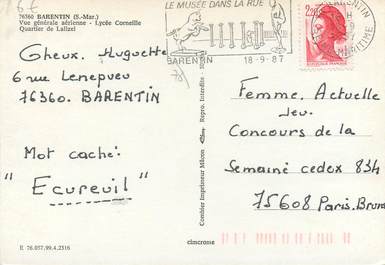 76360 BARENTIN (S.-Mar.)
Vue générale aérienne - Lycée Corneille
Quartier de Lalizel
LE MUSÉE DANS LA RUE
BARENTIN
18-9-87
BARENTIN
MARITIME
2,20
Gheux Huguette
6 rue Lenepveu
76360. BARENTIN
Mot caché:
"Ecureuil"
Femme Actuelle
Jeu
Concours de la
Semaine cedex 834
75608 Paris.Brune
Combier Imprimeur Mâcon
Repro. Interdite
E 76.057.99.4.2316
cimcrosse